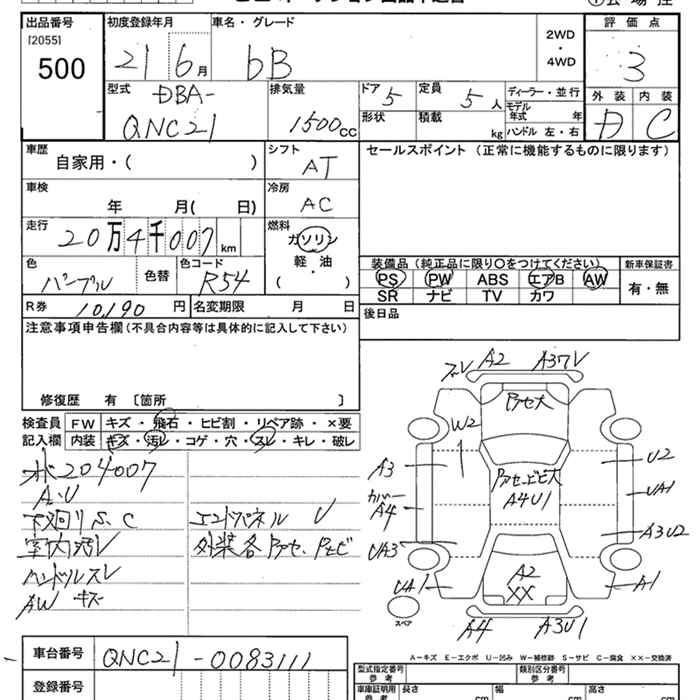 出品番号
[2055]
500
初度登録年月
21 6月
車名・グレード
bB
2WD
・
4WD
評 価 点
3
外 装 内 装
D C
型式
DBA-
QNC21
排気量
1500cc
ドア 5
定員 5人
形状
積載 kg
ディーラー・並行
モデル年式 年
ハンドル 左・右
車歴
自家用・( )
シフト
AT
セールスポイント (正常に機能するものに限ります)
車検
年 月( 日)
冷房
AC
走行
20万4千007km
燃料
ガソリン
軽・油
( )
色
パープル
色替
色コード
R54
装備品(純正品に限り○をつけてください)
PS PW ABS エアB AW
SR ナビ TV カワ
新車保証書
有・無
R券 10,190 円
名変期限 月 日
後日品
注意事項申告欄(不具合内容等は具体的に記入して下さい)
修復歴 有 〔箇所 〕
検査員記入欄
FW キズ・飛石・ヒビ割・リペア跡・×要
内装 キズ・汚レ・コゲ・穴・スレ・キレ・破レ
204007
A・U
下廻りS、C
室内汚レ
ハンドルスレ
AW キズ
エンドパネル U
A2
A37V
W2
A3
カバー
A4
UA3
UA1
A4U1
U2
UA1
A3U2
A1
A2
XX
スペア
A4
A3U1
A－キズ E－エクボ U－凹み W－補修跡 S－サビ C－腐食 ××－交換済
車台番号
QNC21-0083111
登録番号
型式指定番号
参考
類別区分番号
参考
車庫証明用
参考
長さ cm
幅 cm
高さ cm